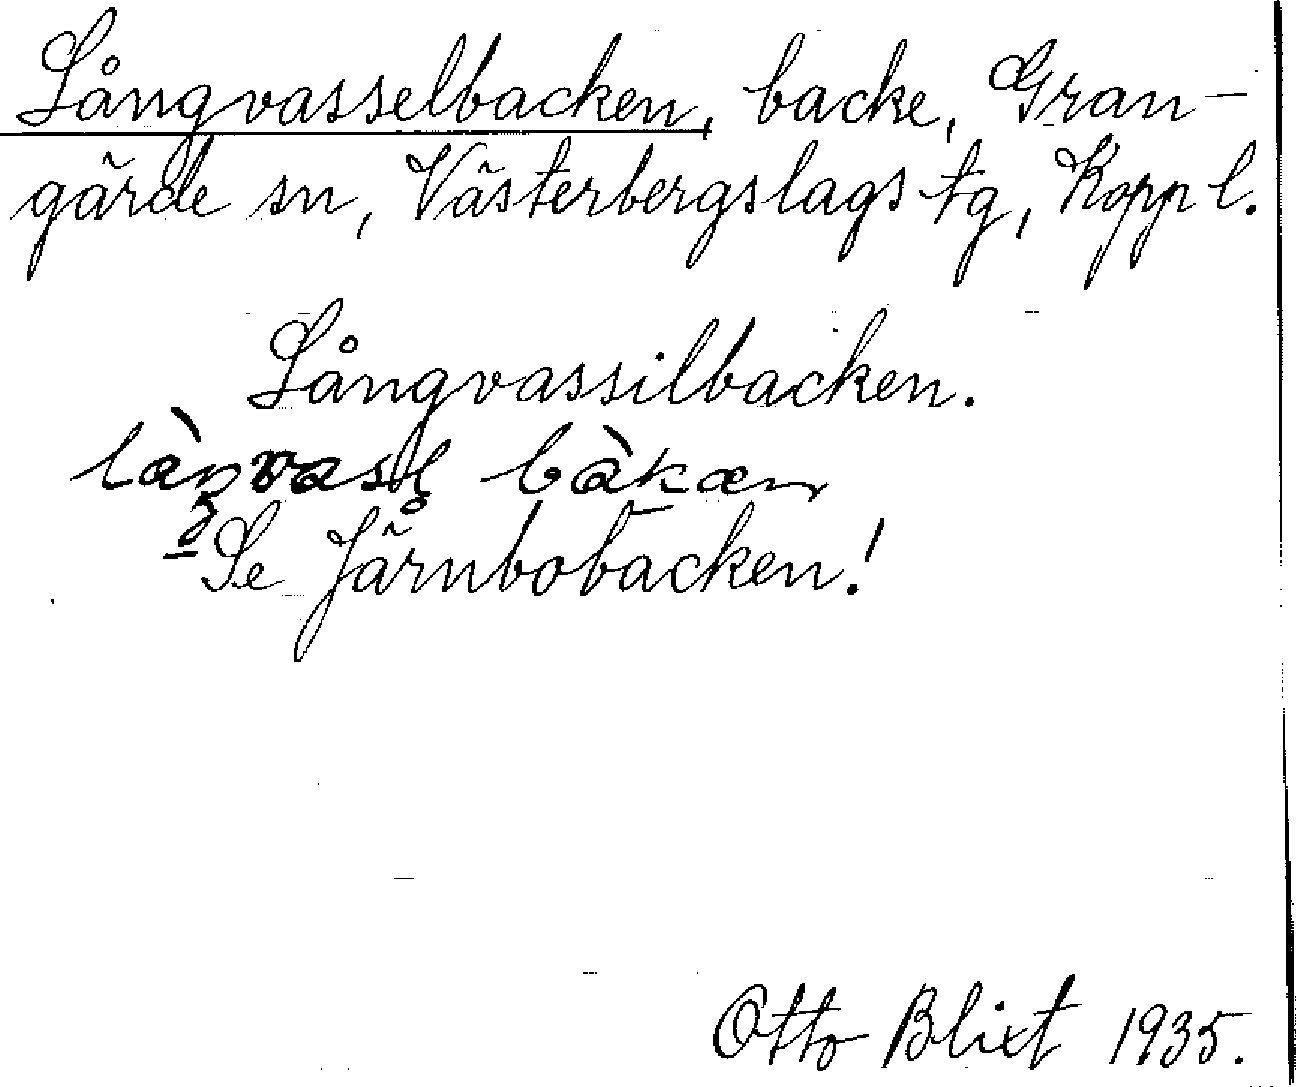 Långvasselbacken, backe, Gran-
gärde sn, Västerbergslags tg, Kopp l.
Långvassilbacken.
Se Järnbobacken!
Otto Blixt 1935.